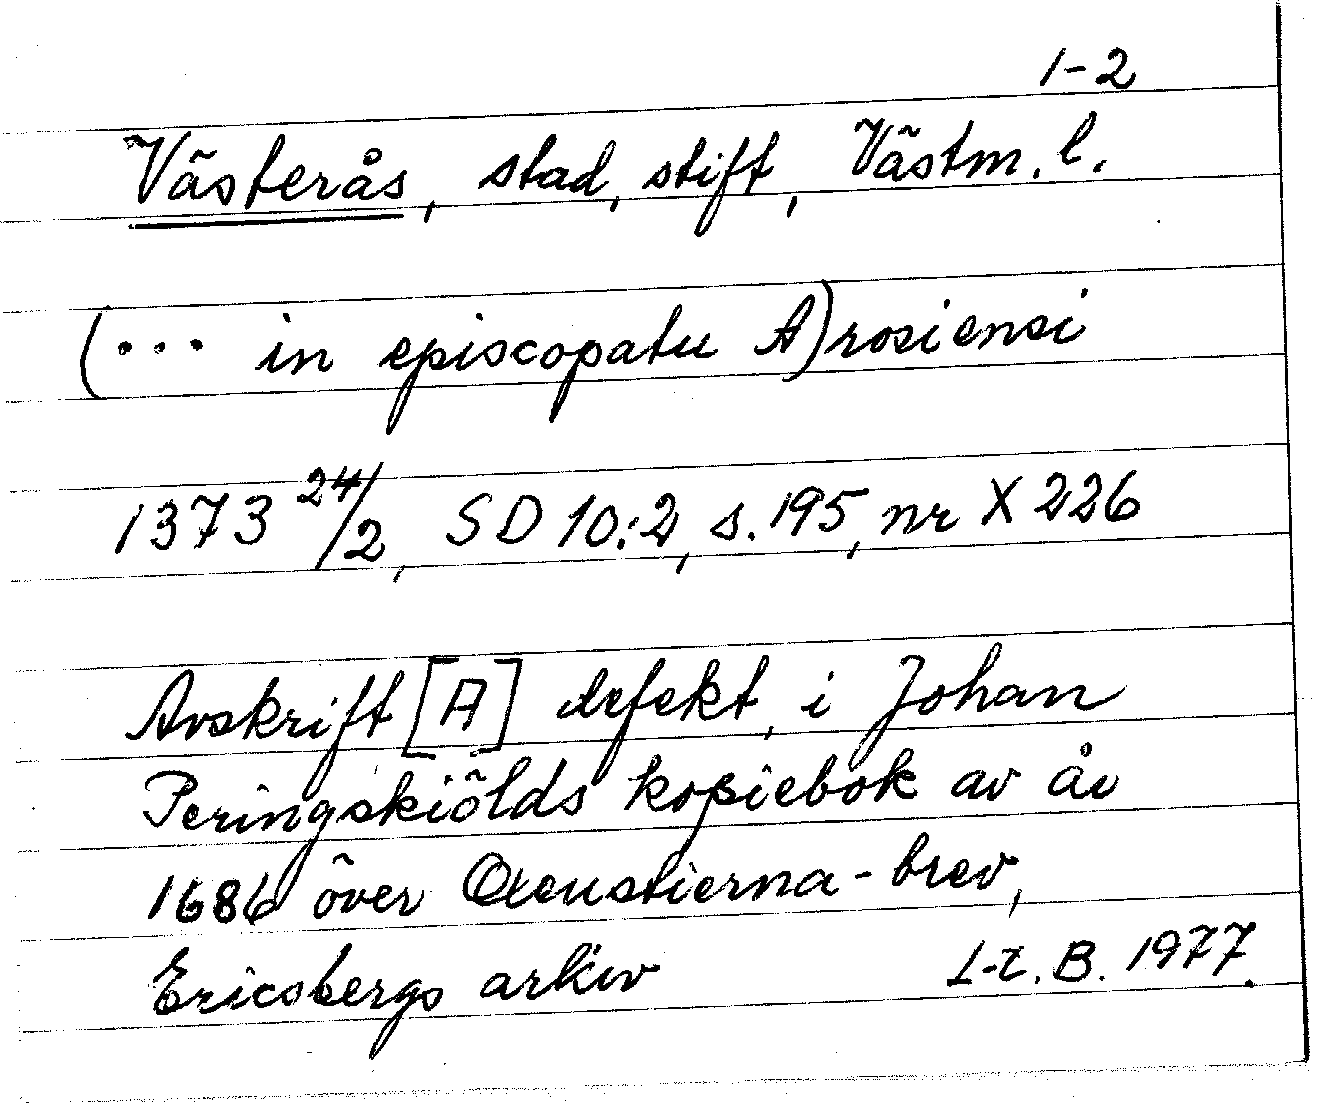 1-2
Västerås, stad, stift, Västm. l.
(... in episcopatu A)rosiensi
1373 24/2, SD 10:2, s. 195, nr X 226
Avskrift [A] defekt, i Johan
Peringskiölds kopiebok av år
1686 över Oxenstierna-brev,
Ericsbergs arkiv L-t. B. 1977.